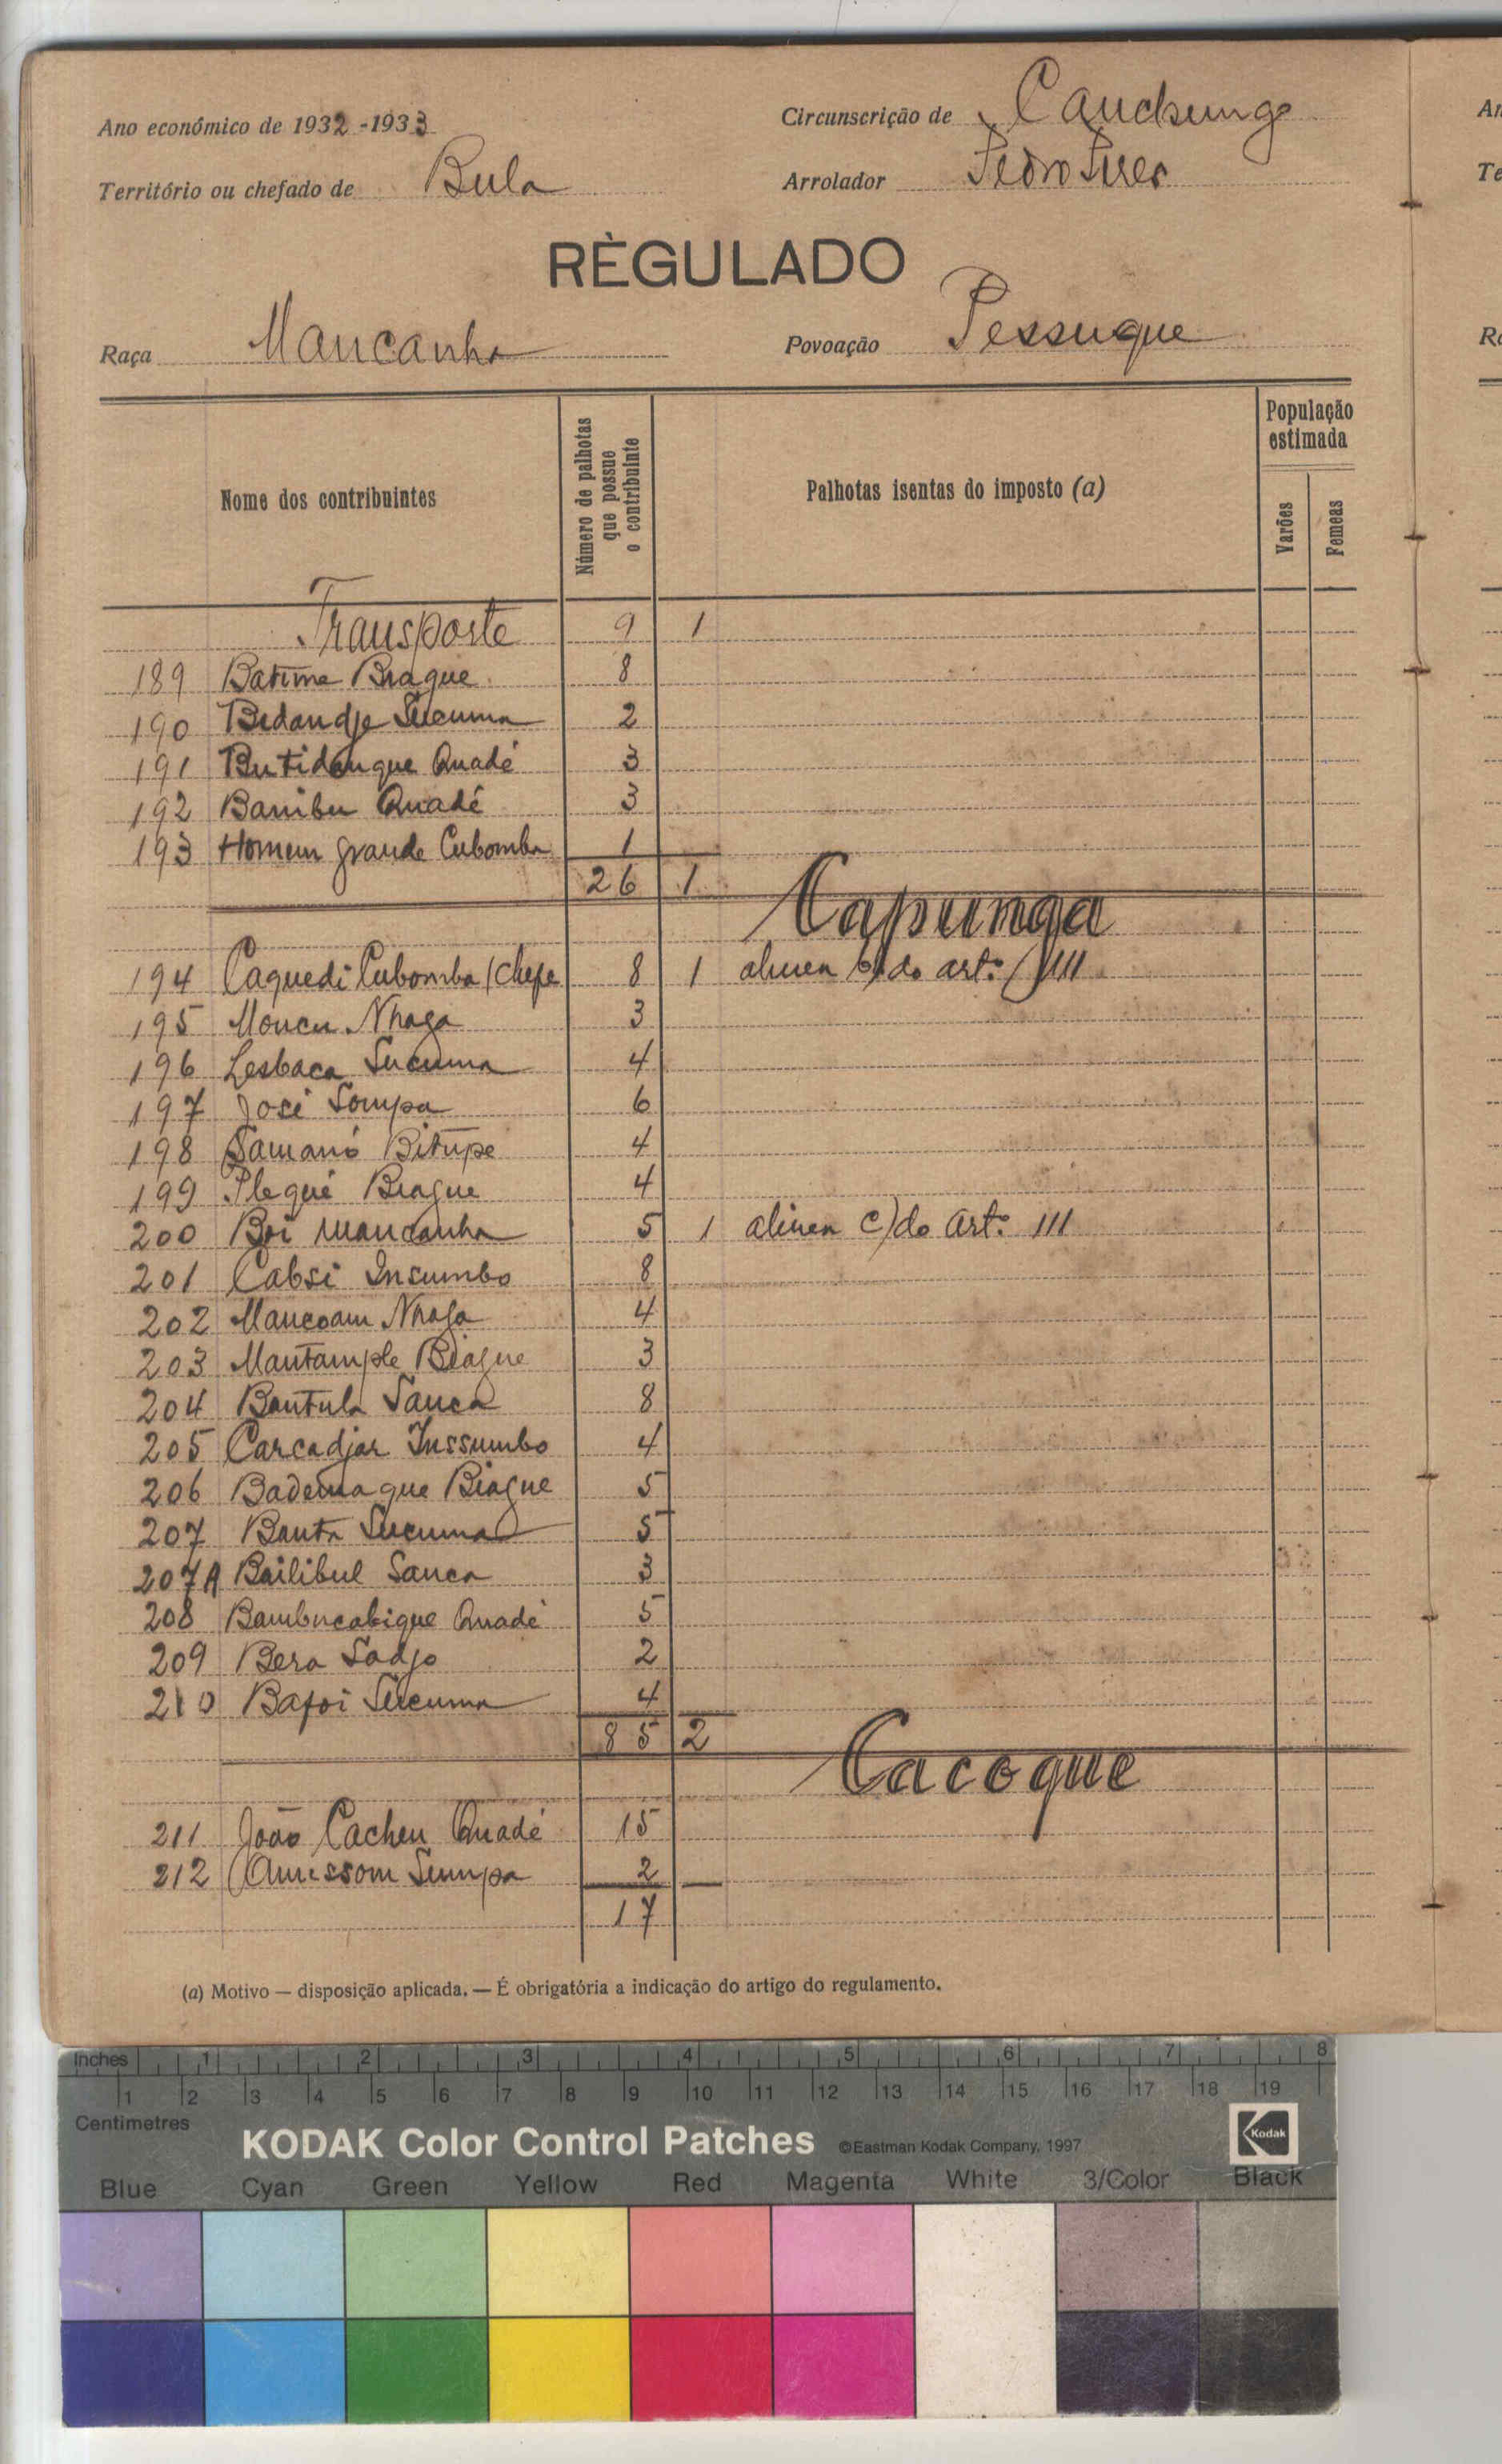 Ano económico de 1932-1933
Circunscrição de Canchungo
Território ou chefado de Bula
Arrolador Pedro Pires
RÈGULADO
Raça Mancanha
Povoação Pessuque
Nome dos contribuintes
Número de palhotas que possue o contribuinte
Palhotas isentas do imposto (a)
População estimada
Varões
Femeas
Transporte 9 1
189 Batime Biague 8
190 Bedandje Sucuma 2
191 Butidauque Quadé 3
192 Banibu Quadé 3
193 Homem grande Cubomba 1
26 1
Capunga
194 Caquedi Cubomba / Chefe 8 1 alinea b) do art.º III
195 Moncu Nhaga 3
196 Lesbaca Sucuma 4
197 José Sompa 6
198 Samanó Bitupe 4
199 Plequé Biague 4
200 Boi Mancanha 5 1 alinea c) do art.º III
201 Cabsi Insumbo 8
202 Mancoam Nhaga 4
203 Mantample Biague 3
204 Bantula Sanca 8
205 Carcadjar Inssumbo 4
206 Bademaque Biague 5
207 Banta Sucuma 5
207A Bailibul Sanca 3
208 Bambucabique Quadé 5
209 Bera Sadjo 2
210 Bapoi Sucuma 4
85 2
Cacoque
211 João Cacheu Quadé 15
212 Amissom Sumpa 2
17
(a) Motivo — disposição aplicada. — É obrigatória a indicação do artigo do regulamento.
Inches 1 2 3 4 5 6 7 8
1 2 3 4 5 6 7 8 9 10 11 12 13 14 15 16 17 18 19
Centimetres
KODAK Color Control Patches ©Eastman Kodak Company, 1997 Kodak
Blue Cyan Green Yellow Red Magenta White 3/Color Black